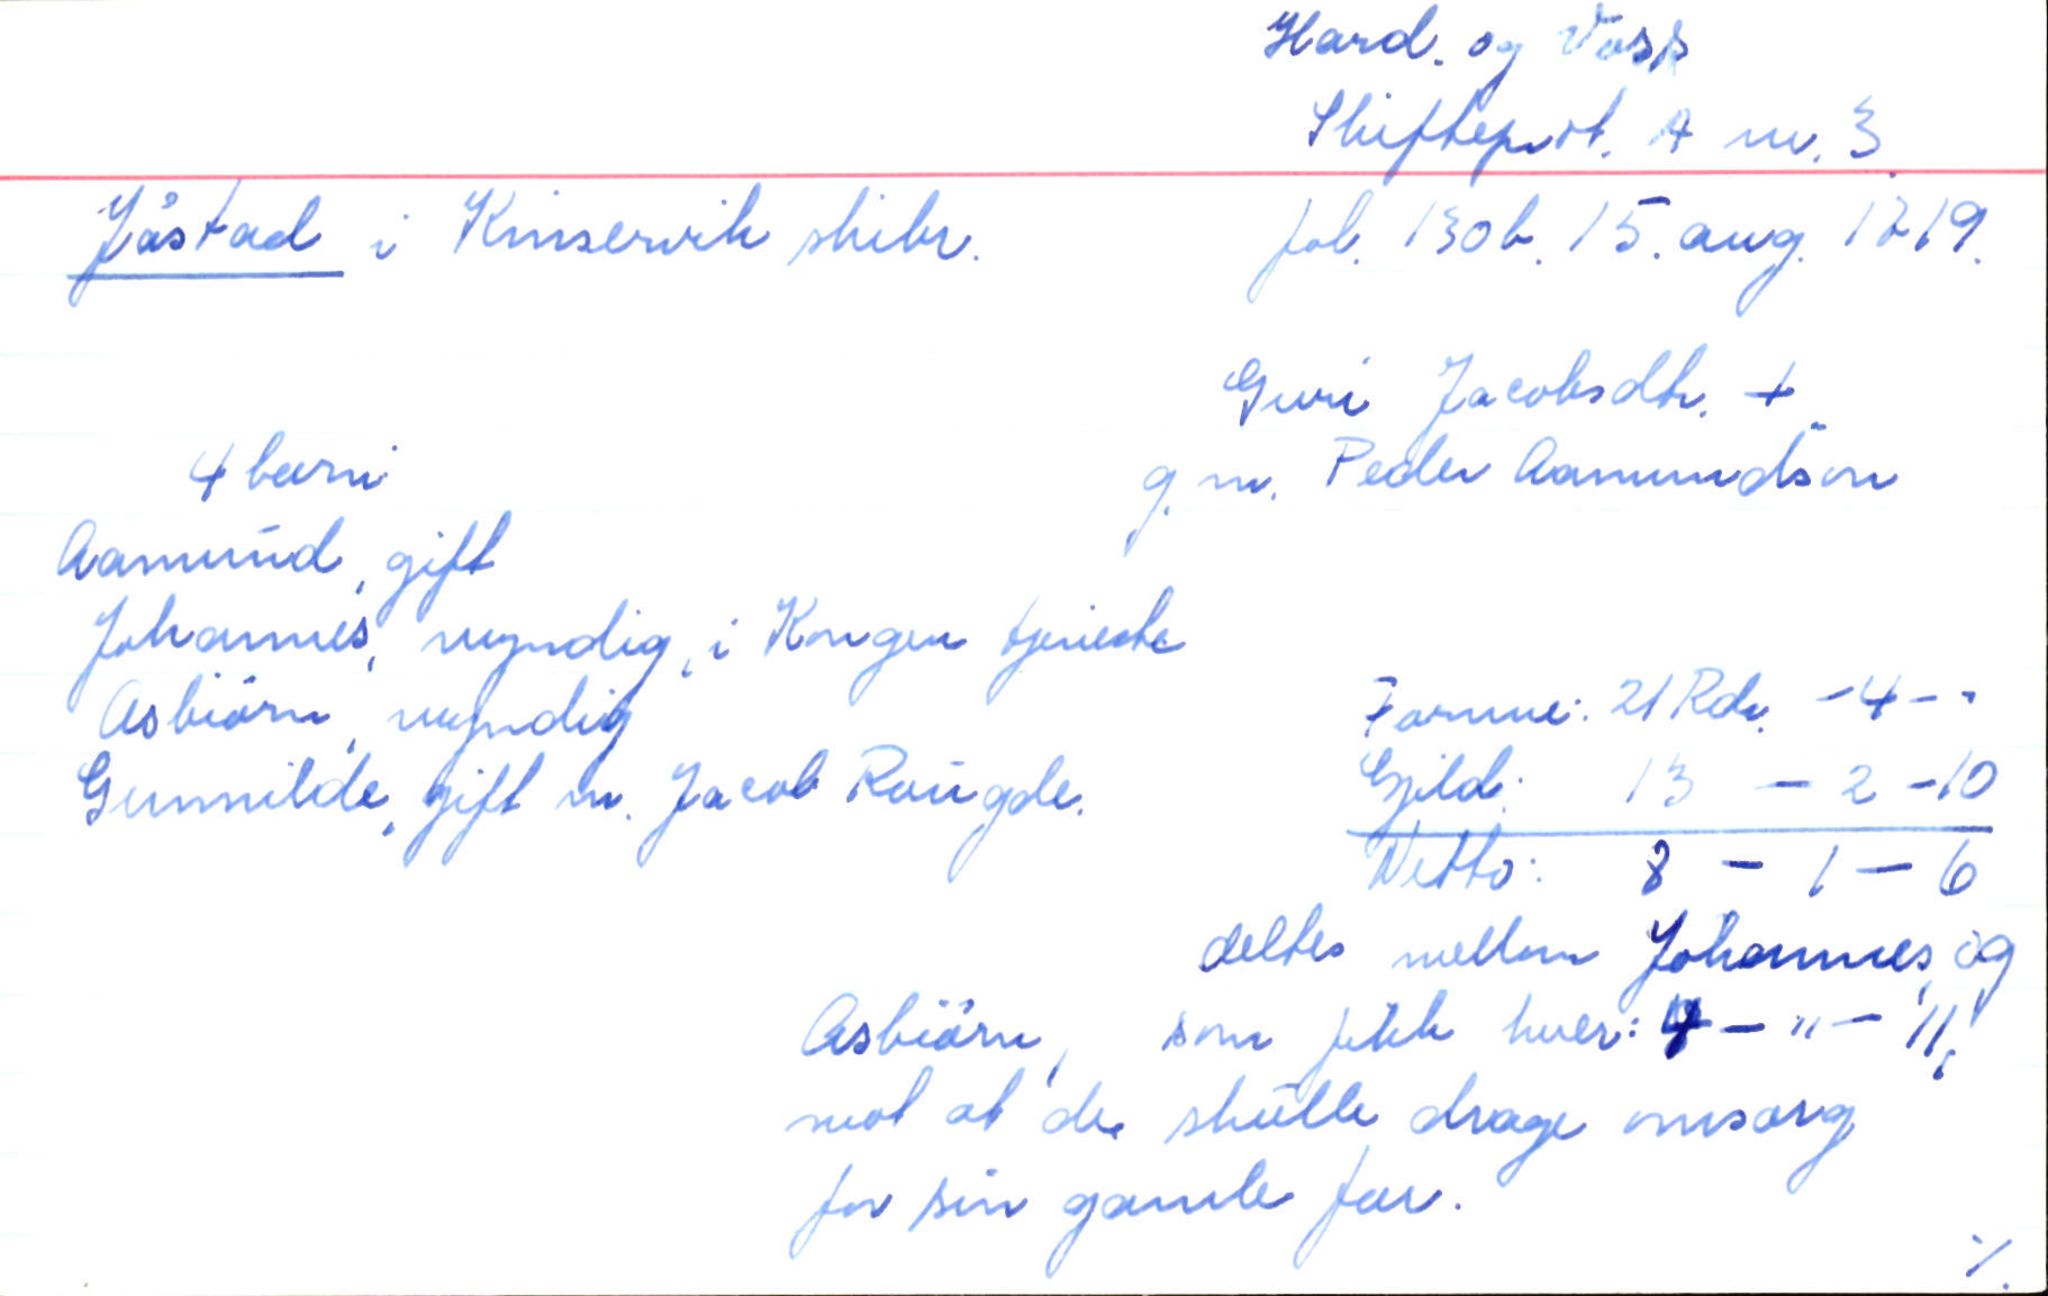 Hard. og Voss
Skifteprot. A nr. 3
Jåstad i Kinservik skibr.
fol. 130b. 15. aug. 1719.
Guri Jacobsdtr. +
g. m. Peder Aamundsøn
4 barn:
Aamund, gift
Johannes, myndig, i Kongen tjeneste
Asbiørn, myndig
Gunnilde, gift m. Jacob Raugde.
Formue: 21 Rdr. - 4 - -
Gjeld: 13 - 2 - 10
Netto: 8 - 1 - 6
deltes mellom Johannes og
Asbiørn, som fikk hver: 4 - " - ",
mot at de skulle drage omsorg
for sin gamle far.
./.